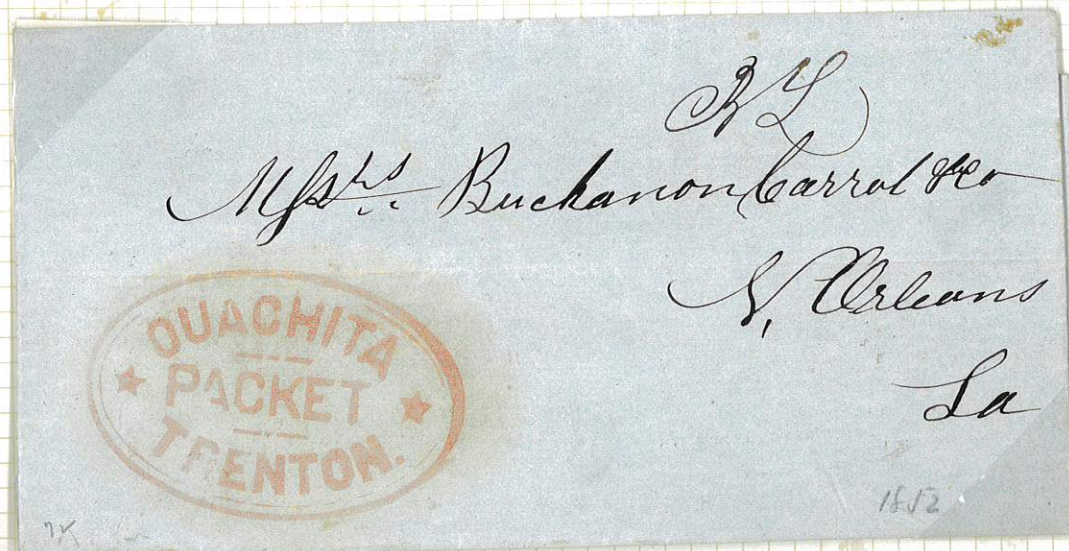 BL
Messrs. Buchanon Carrol & Co
N. Orleans
La
OUACHITA
PACKET
TRENTON.
1852